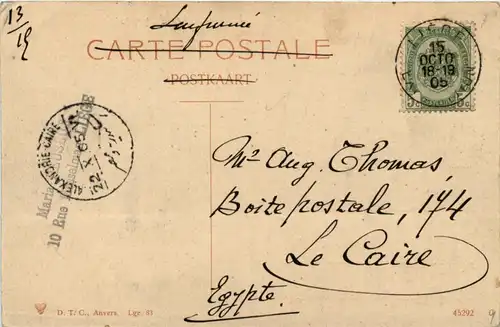 13/15
Imprimé
CARTE POSTALE
POSTKAART
15
OCTO
18-19
05
ALEXANDRIE-CAIRE
22 X 05
10 Rue
Mr Aug. Thomas,
Boite postale, 174
Le Caire
Egypte.
D. T/C., Anvers. Lge. 43
45292